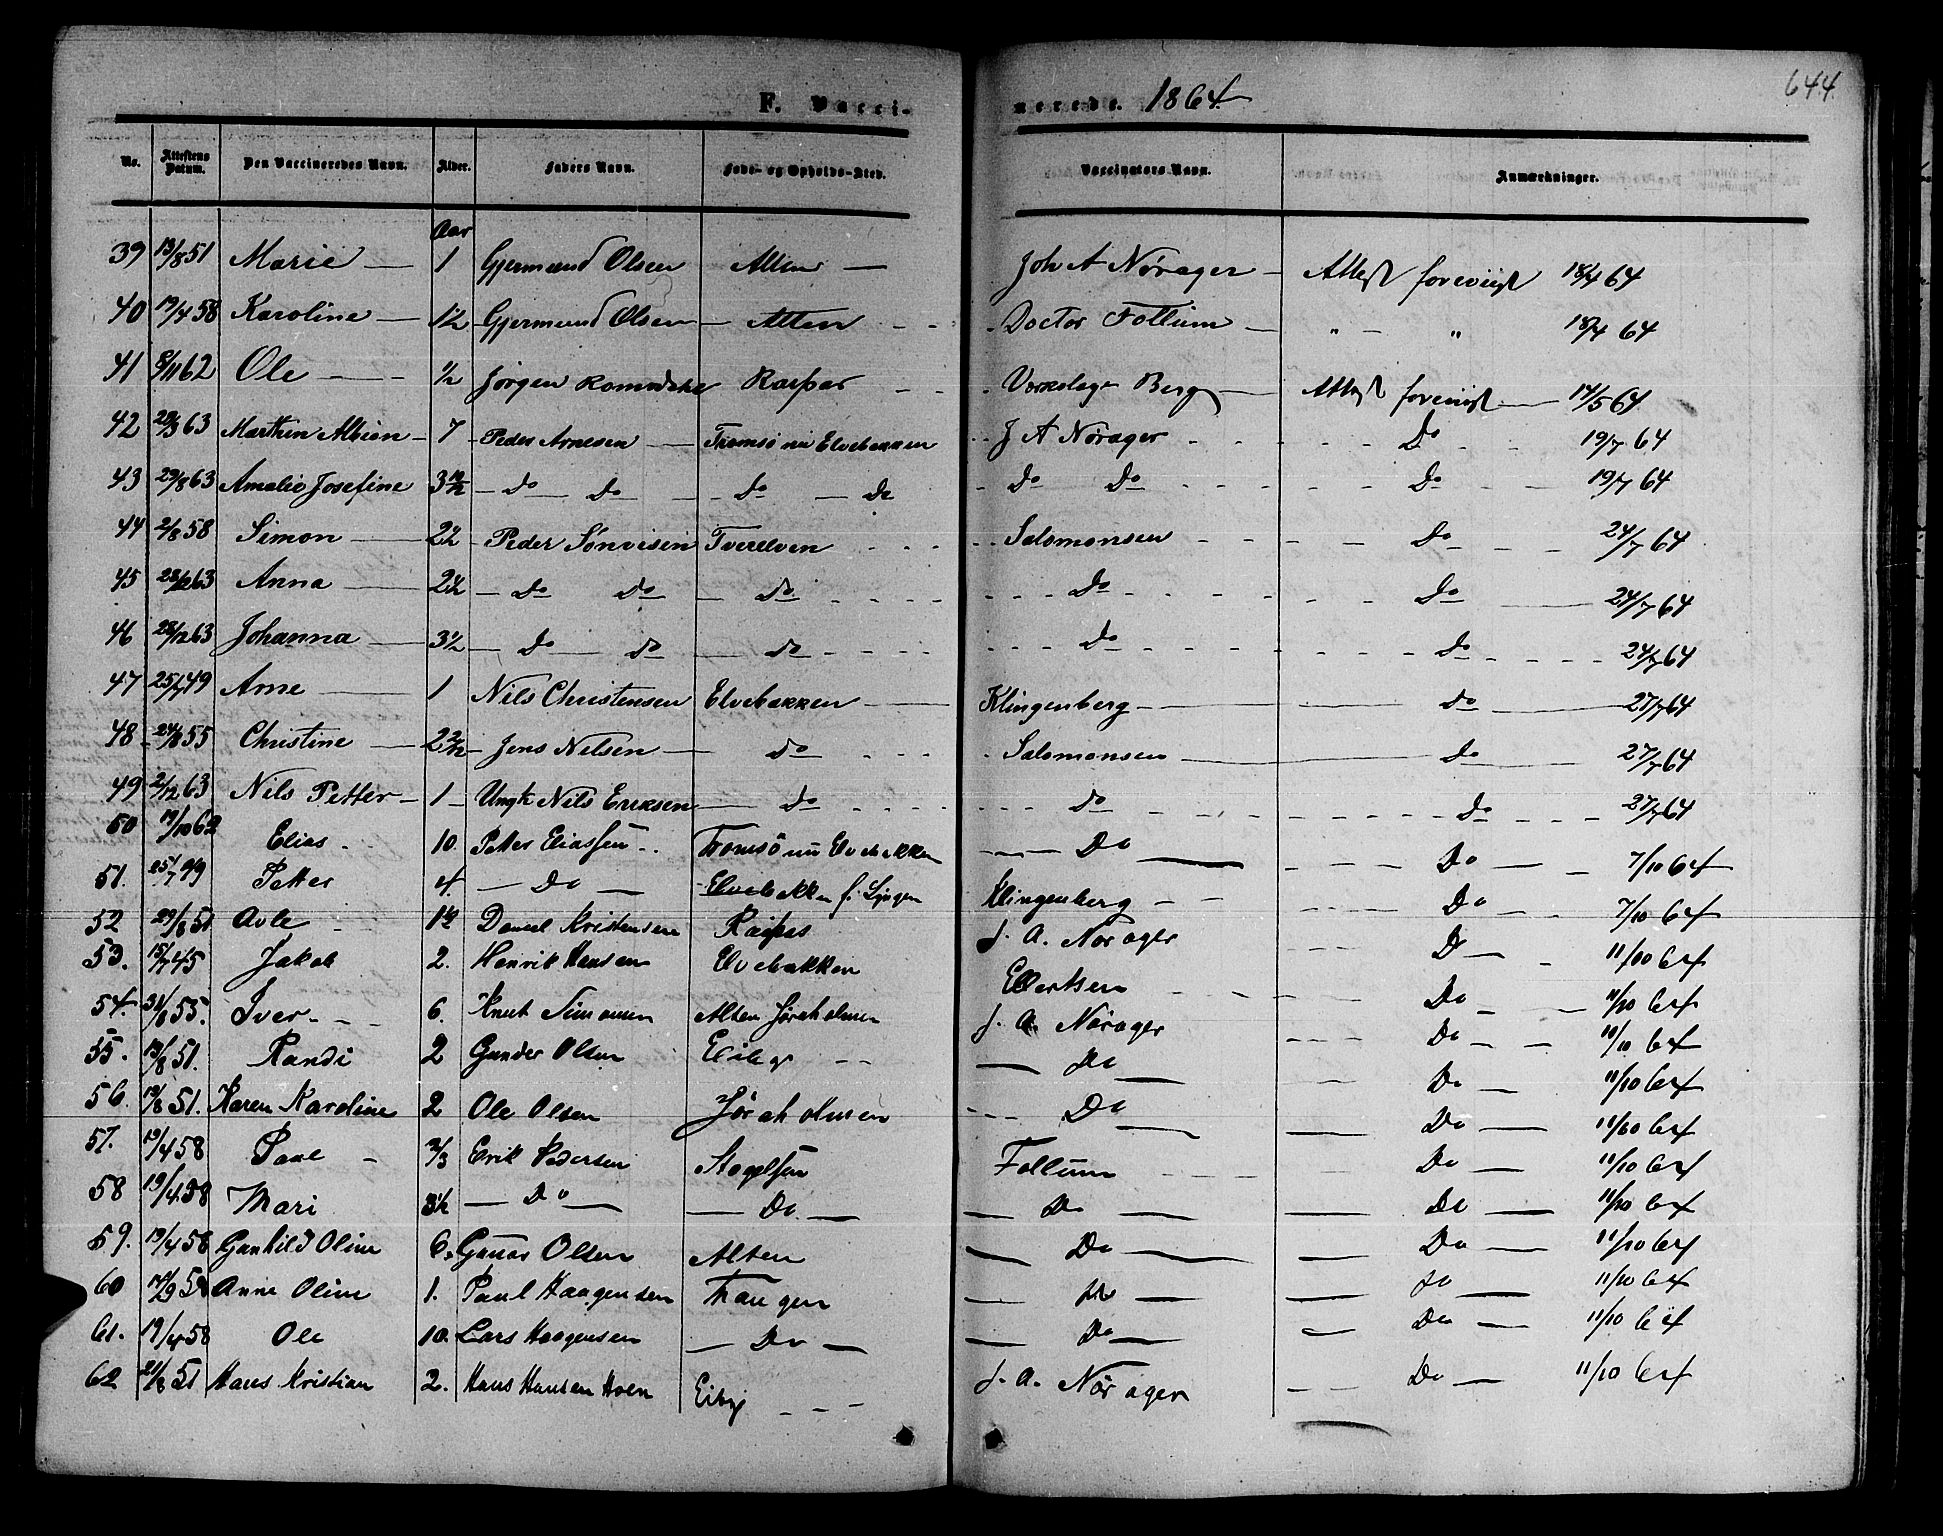 644
F. Vacci- nerede. 1864
No. Attestens Datum. Den Vaccineredes Navn. Alder. Faders Navn. Føde- og Opholds-Sted. Vaccinators Navn. Anmærkninger.
Aar
39 13/8 51 Marie 1 Gjermund Olsen Alten Joh A Nørager Attest foreviist 18/4 64
40 19/4 58 Karoline 1 1/2 Gjermund Olsen Alten Doctor Follum " " 18/4 64
41 8/11 62 Ole 1/2 Jørgen Raipas Berg Attest foreviist 17/5 64
42 29/3 63 Marthin Albion 7 Peder Arnesen Tromsø nu Elvebakken J A Nørager Do 19/7 64
43 29/8 63 Amalie Josefine 3 10/12 Do Do Do Do Do Do Do 19/7 64
44 2/8 58 Simon 2 1/2 Peder Tverelven Salomonsen Do 24/7 64
45 28/12 63 Anna 2 1/2 Do Do Do Do Do 24/7 64
46 28/12 63 Johanna 3 1/2 Do Do Do Do Do 24/7 64
47 25/7 49 Arne 1 Nils Christensen Elvebakken Klingenberg Do 27/7 64
48 24/8 55 Christine 2 2/12 Jens Nilsen Do Salomonsen Do 27/7 64
49 2/12 63 Nils Petter 1 Ungk Nils Eriksen Do Do Do 27/7 64
50 19/10 62 Elias 10 Petter Eliassen Tromsø nu Elvebakken Do Do 7/10 64
51. 25/7 49 Petter 4 Do Elvebakken f. Lyngen Klingenberg Do 7/10 64
52 29/8 51 1 1/2 Daniel Kristensen Raipas J. A. Nørager Do 11/10 64
53. 15/7 45 Jakob 2. Henrik Hansen Elvebakken Ellertsen Do 11/10 64
54. 31/8 55. Iver 6. Knut Simonsen Alten Jøraholmen J. A. Nørager Do 11/10 64
55. 13/8 51. Randi 2 Gunder Olsen Eiby Do Do 11/10 64
56. 19/8 51. Karen Karoline 2 Ole Olsen Jøraholmen Do Do 11/10 64
57. 19/4 58 Paul 2/3 Erik Pedersen Follum Do 11/10 64
58 19/4 58 Mari 3 1/2 Do Do Do Do 11/10 64
59. 19/4 58 Gunhild Oline 6. Gunar Olsen Alten Do Do 11/10 64
60 14/9 58 Anne Oline 1. Paul Haagensen Do Do 11/10 64
61. 19/4 58 Ole 10. Lars Haagensen Do Do Do 11/10 64
62 21/8 51 Hans Kristian 2. Hans Hansen Hoen Eiby J. A. Nørager Do 11/10 64